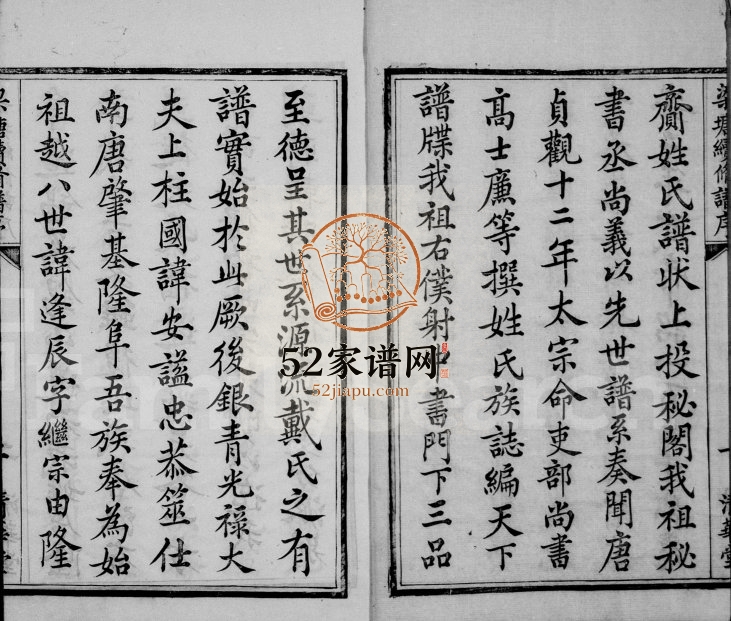 梁塘續修譜序
齎姓氏譜狀上投秘閣我祖秘
書丞尚義以先世譜系奏聞唐
貞觀十二年太宗命吏部尚書
高士廉等撰姓氏族誌編天下
譜牒我祖右僕射中書門下三品
至德呈其世系源流戴氏之有
譜實始於此厥後銀青光祿大
夫上柱國諱安謚忠恭筮仕
南唐肇基隆阜吾族奉為始
祖越八世諱逢辰字繼宗由隆
52家谱网
52jiapu.com